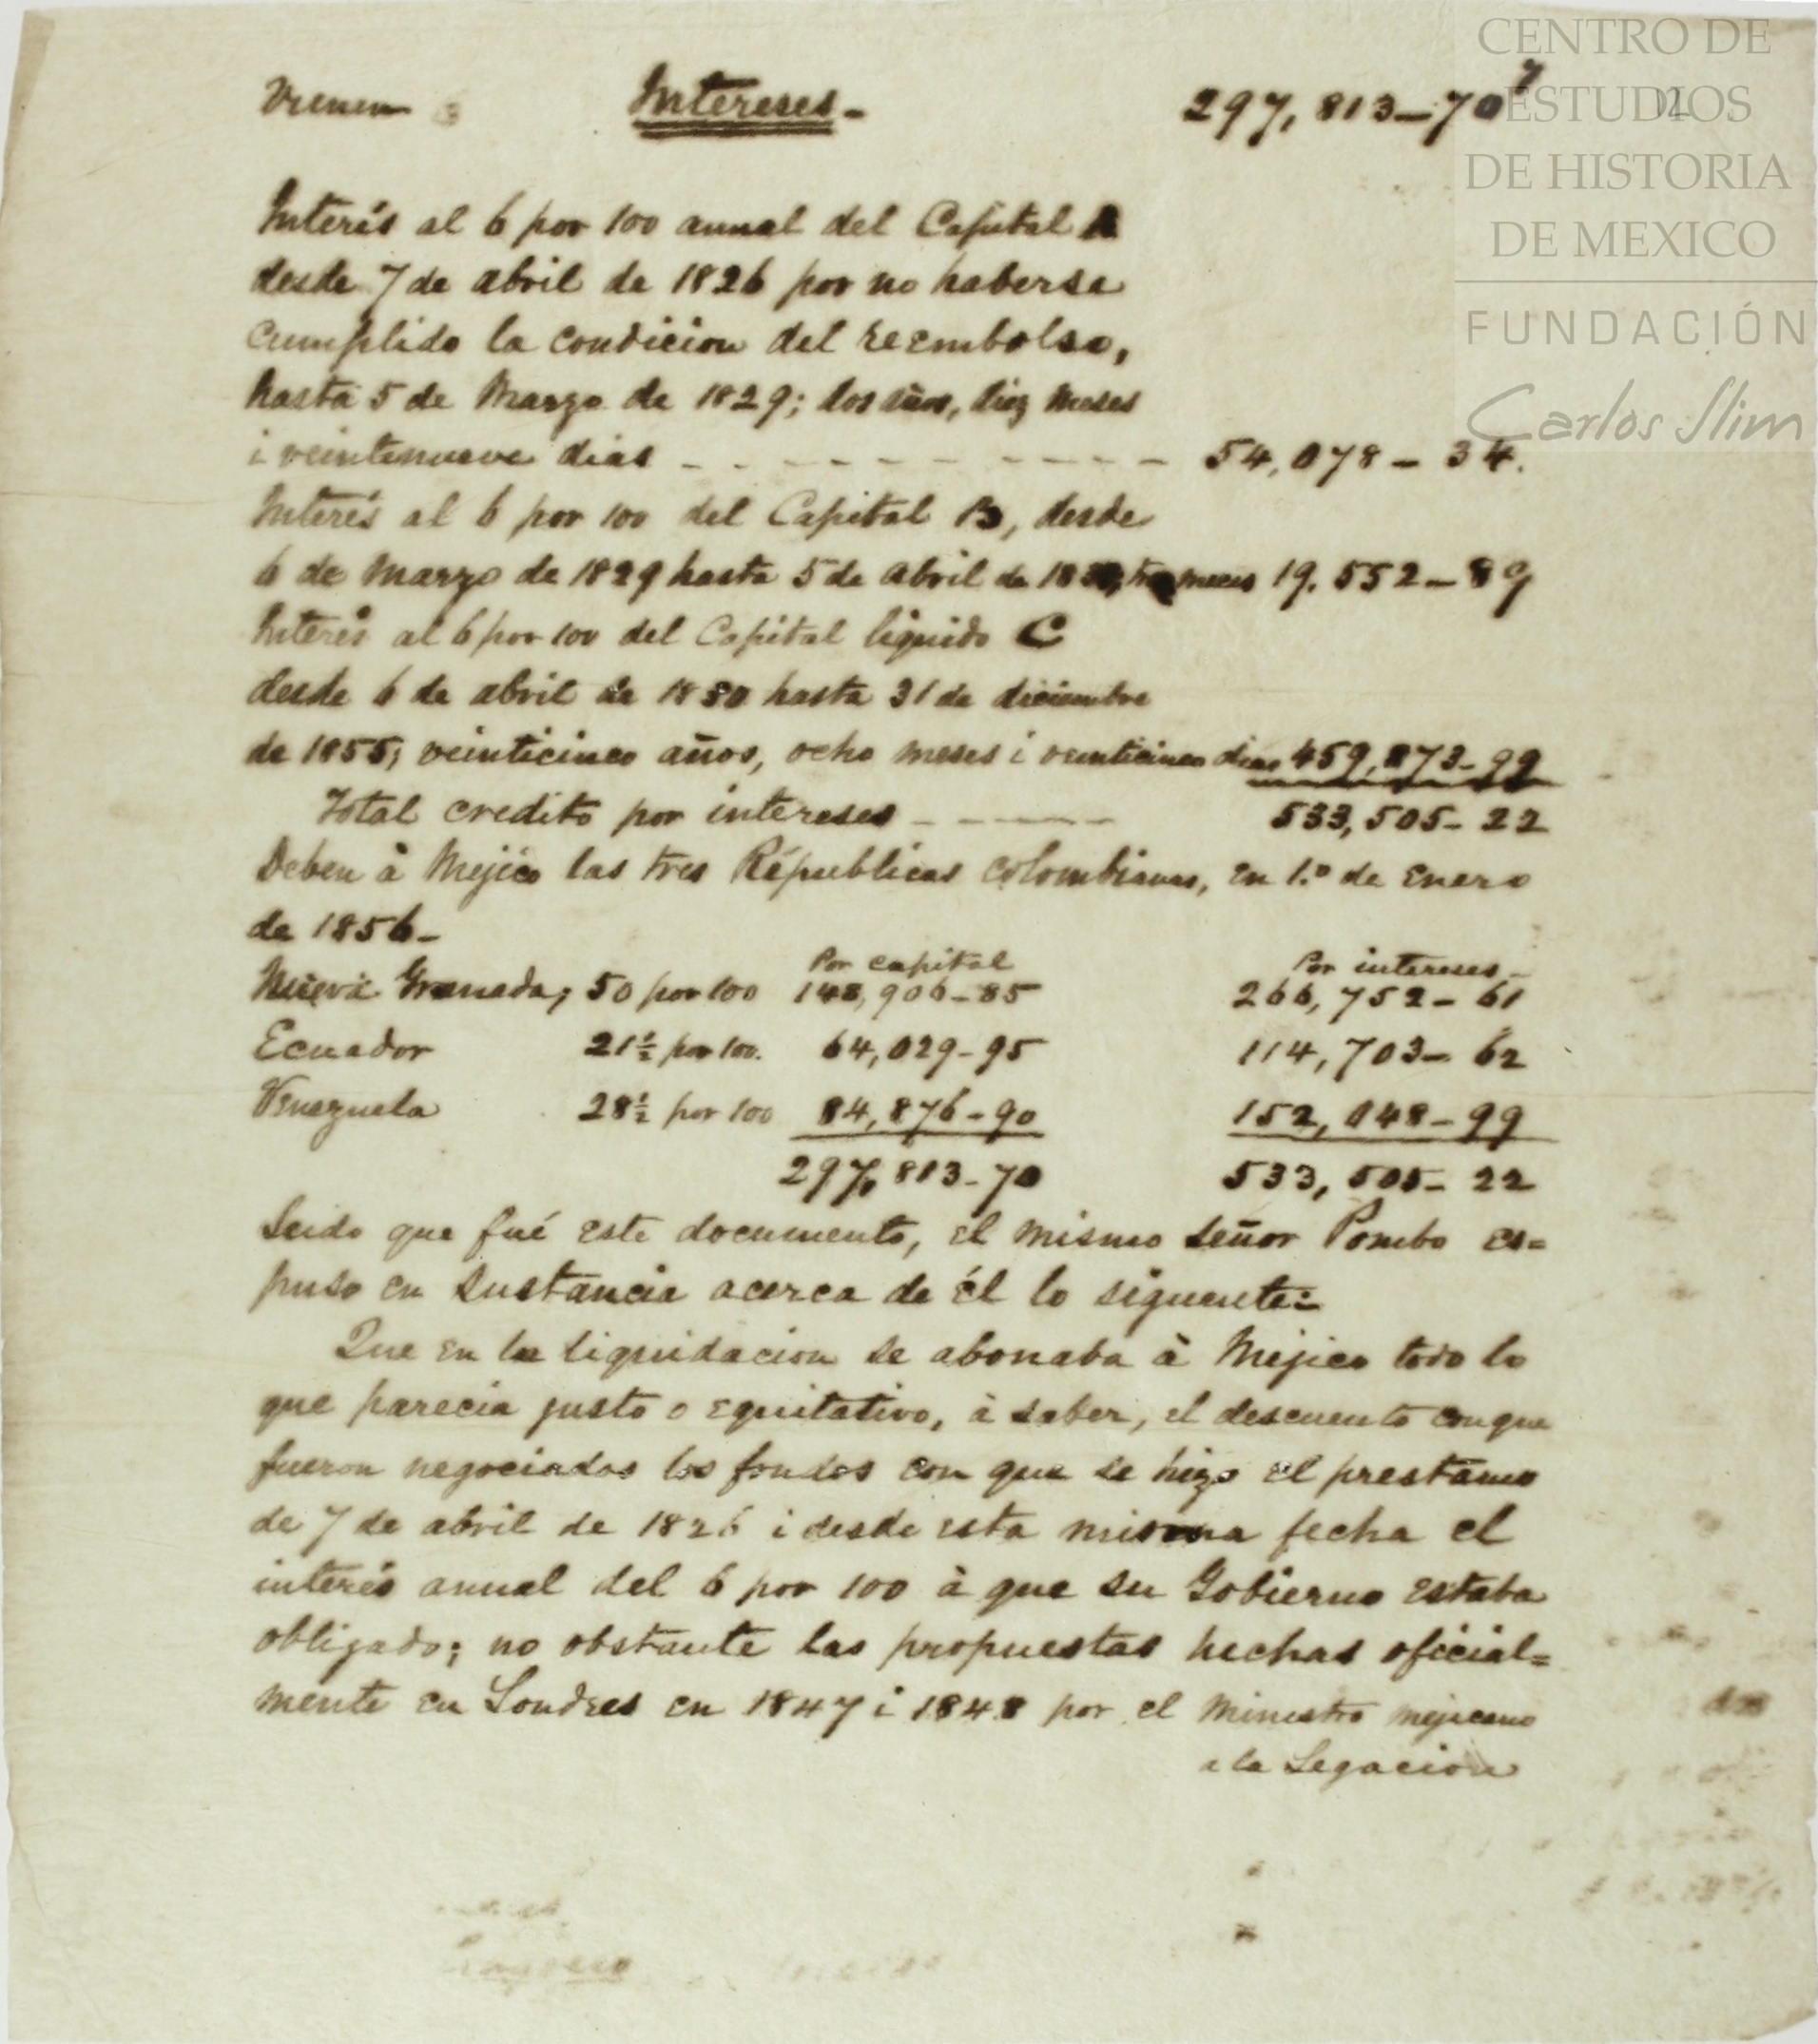 CENTRO DE
ESTUDIOS
DE HISTORIA
DE MEXICO
FUNDACIÓN
Carlos Slim
Vienen Intereses- 297,813-70
Interés al 6 por 100 annual del Capital A
desde 7 de abril de 1826 por no haberse
cumplido la condicion del reembolso,
hasta 5 de Marzo de 1829; dos años, diez meses
i veintenueve dias - - - - - - - - - - 54,078-34.
Interés al 6 por 100 del Capital B, desde
6 de Marzo de 1829 hasta 5 de Abril de meses 19.552-89
Interés al 6 por 100 del Capital liquido C
desde 6 de abril de 1830 hasta 31 de diciembre
de 1855; veinticinco años, ocho meses i veinticinco dias 459,873-99
Total credito por intereses - - - - - 533,505-22
Deben à Mejico las tres Républicas colombianas, en 1.º de enero
de 1856-
Por capital Por intereses-
Nueva Granada, 50 por 100 148,906-85 266,752-61
Ecuador 21½ por 100. 64,029-95 114,703-62
Venezuela 28½ por 100 84,876-90 152,048-99
297,813-70 533,505-22
Leido que fué este documento, el mismo Señor Pombo es=
puso en sustancia acerca de él lo siguiente:
Que en la liquidacion se abonaba à Mejico todo lo
que parecia justo o equitativo, à saber, el descuento con que
fueron negociados los fondos con que se hizo el prestamo
de 7 de abril de 1826 i desde esta misma fecha el
interés annal del 6 por 100 à que su Gobierno estaba
obligado; no obstante las propuestas hechas oficial=
mente en Londres en 1847 i 1848 por el Ministro mejicano
a la Legacion